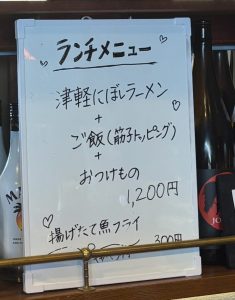 ランチメニュー
津軽にぼしラーメン
+
ご飯(筋子トッピング)
+
おつけもの
1,200円
揚げたて魚フライ
300円